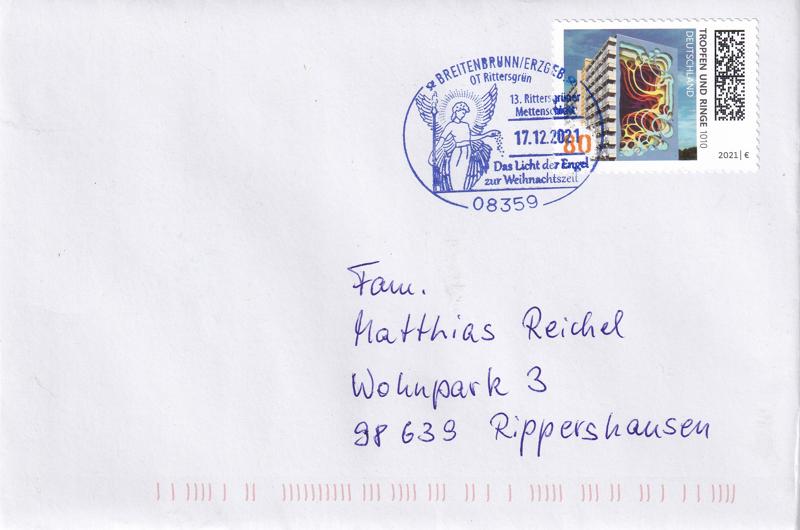 BREITENBRUNN/ERZGEB.
OT Rittersgrün
13. Rittersgrüner
Mettenschicht
17.12.2021
Das Licht der Engel
zur Weihnachtszeit
08359
80
DEUTSCHLAND
TROPFEN UND RINGE 1010
2021 | €
Fam.
Matthias Reichel
Wohnpark 3
98639 Rippershausen